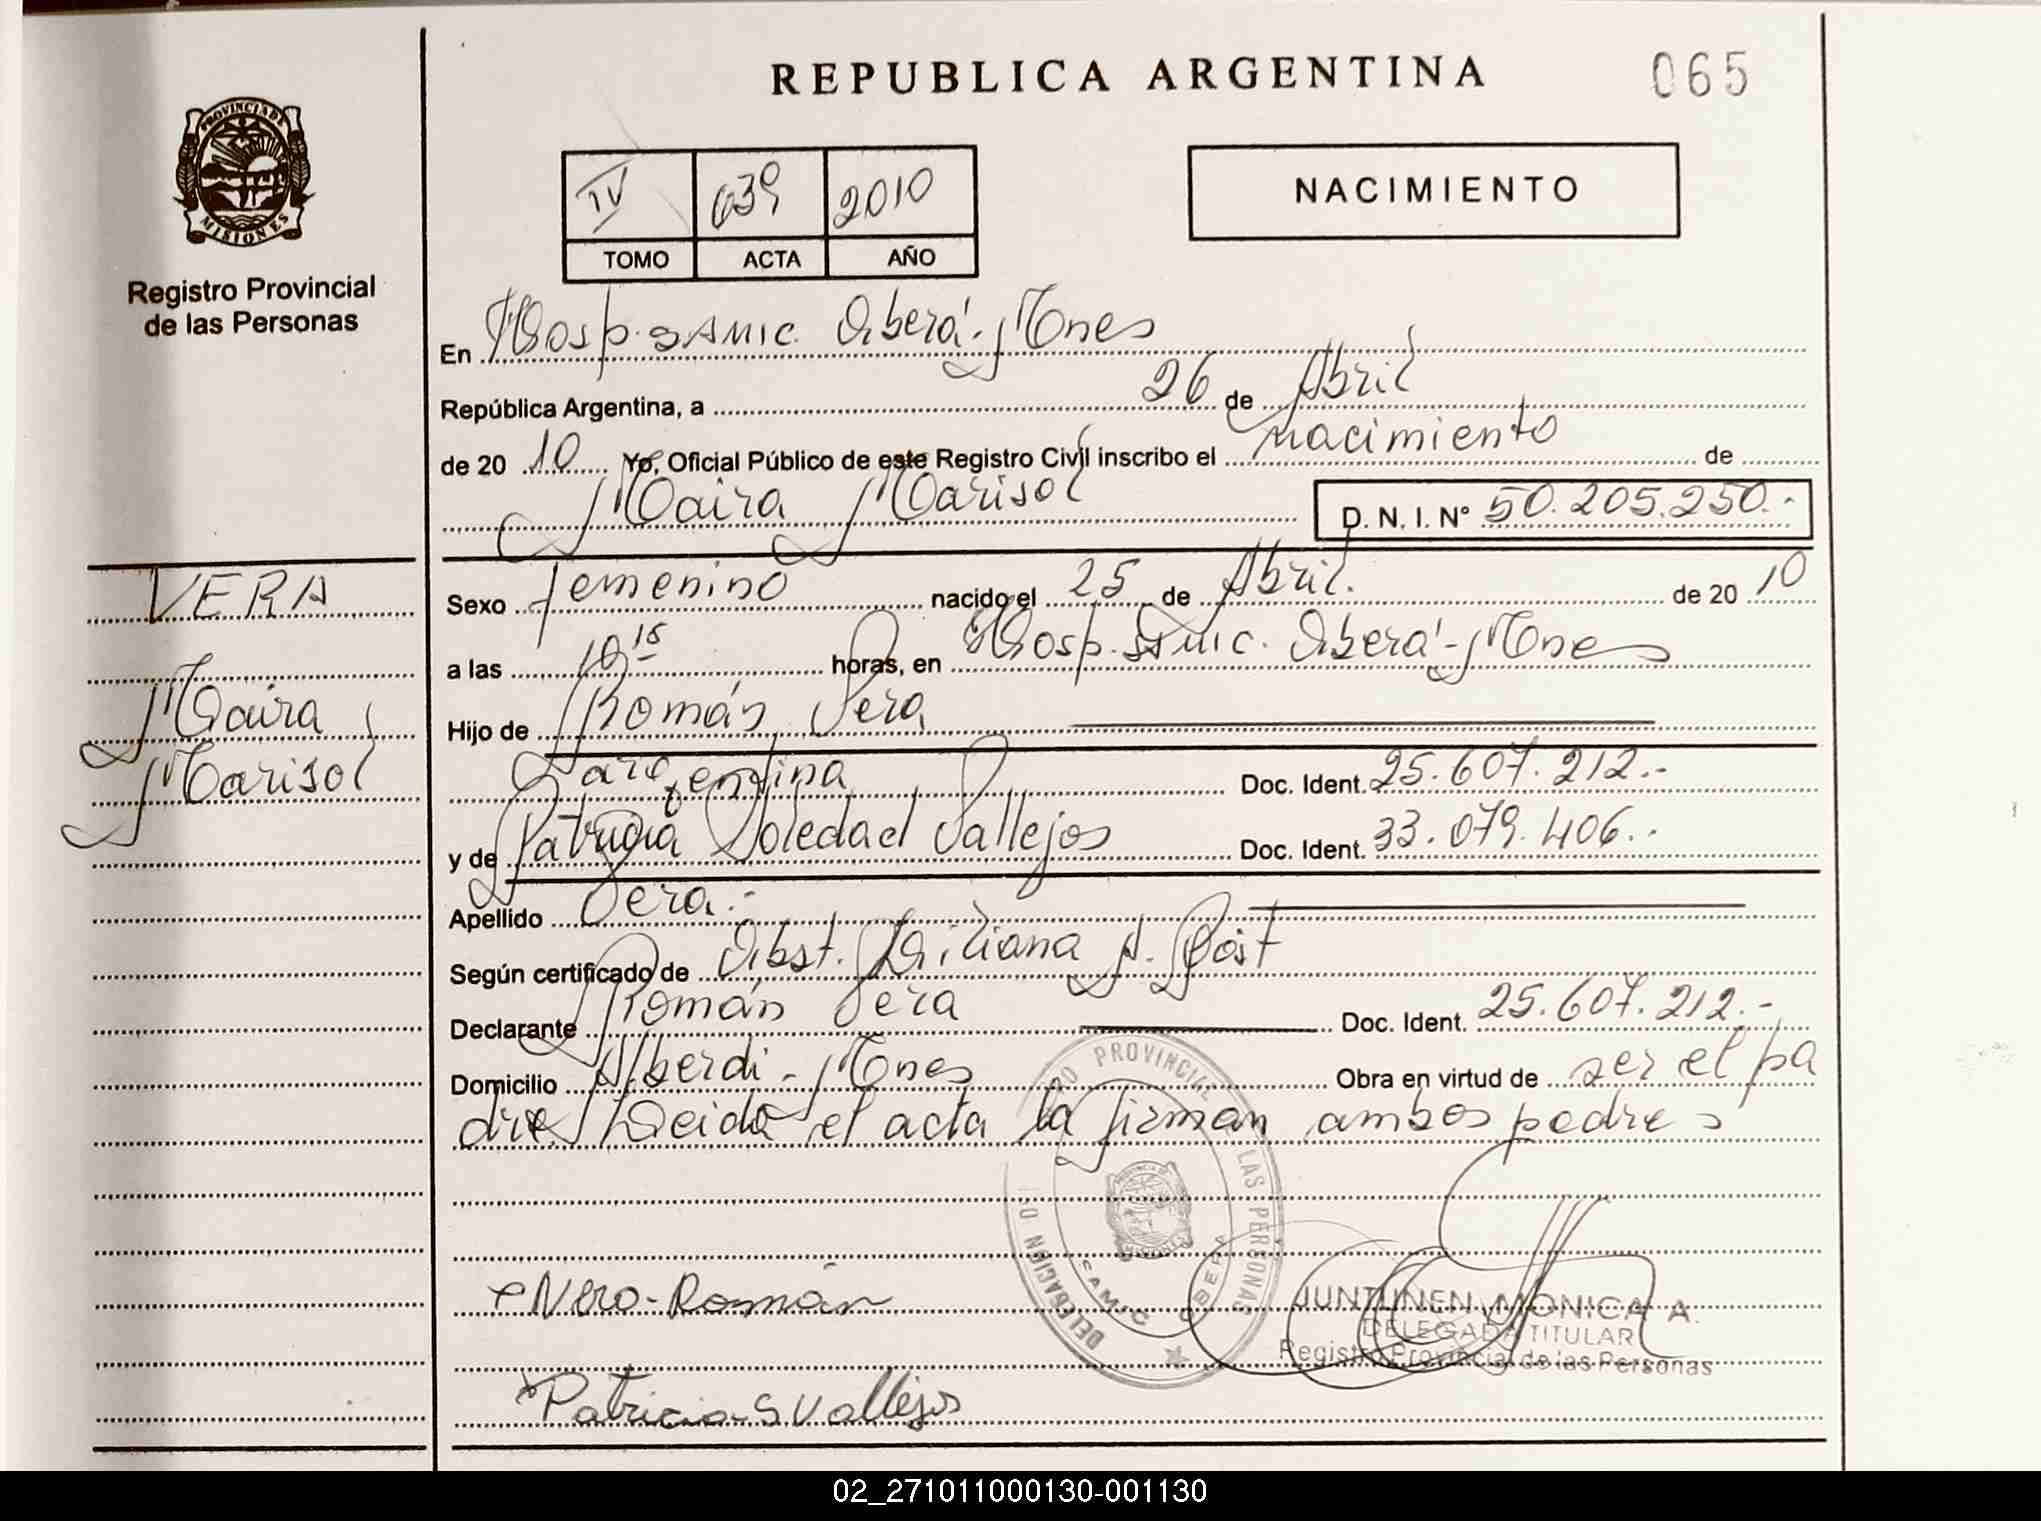 REPUBLICA ARGENTINA
065
PROVINCIA DE
MISIONES
Registro Provincial
de las Personas
IV 039 2010
TOMO ACTA AÑO
NACIMIENTO
En Hosp. SAMIC. Oberá - Mnes
República Argentina, a 26 de Abril
de 20 10 Yo, Oficial Público de este Registro Civil inscribo el nacimiento de
Maira Marisol D. N. I. N° 50.205.250.-
VERA
Maira
Marisol
Sexo femenino nacido el 25 de Abril. de 20 10
a las 10 15 horas, en Hosp. SAMIC. Oberá - Mnes
Hijo de Román Vera
argentina Doc. Ident. 25.607.212.-
y de Patricia Soledad Vallejos Doc. Ident. 33.079.406.-
Apellido Vera.-
Según certificado de Obst. Liliana A.
Declarante Román Vera Doc. Ident. 25.607.212.-
Domicilio Alberdi - Mnes Obra en virtud de ser el pa
dre. Leida el acta la firman ambos padres
PROVINCIAL LAS PERSONAS
DELEGACION
SAMIC OBERA
Vera - Román
JUNTUNEN, MONICA A.
DELEGADA TITULAR
Registro Provincial de las Personas
Patricia S Vallejos
02_271011000130-001130